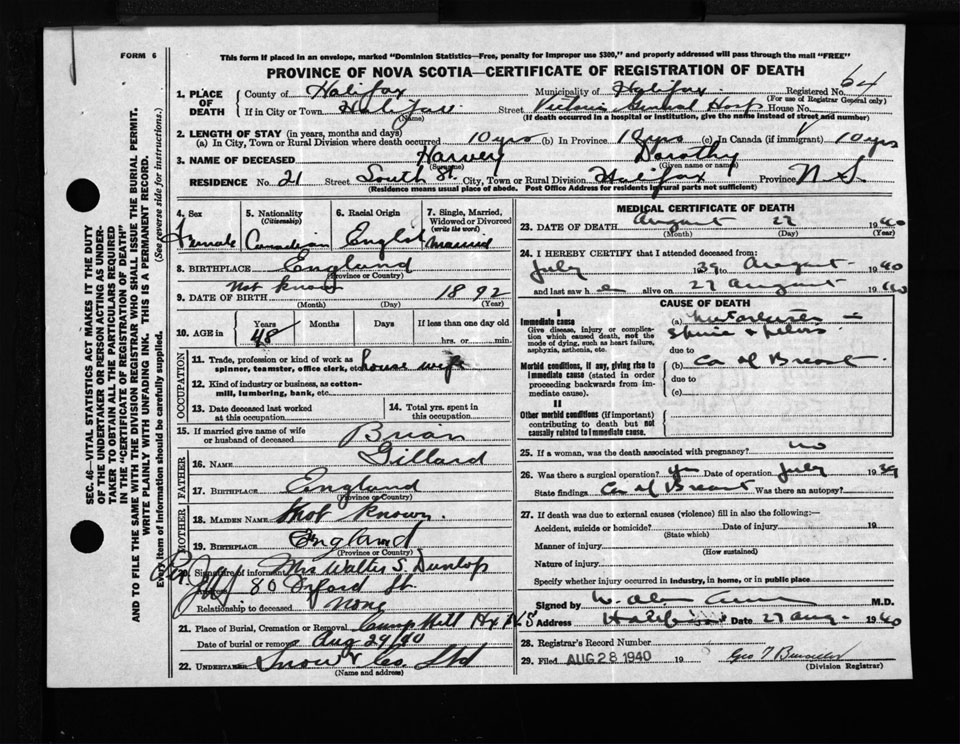 FORM 6
This form if placed in an envelope, marked "Dominion Statistics—Free, penalty for improper use $300," and properly addressed will pass through the mail "FREE"
PROVINCE OF NOVA SCOTIA—CERTIFICATE OF REGISTRATION OF DEATH
1. PLACE OF DEATH
County of Halifax Municipality of Halifax Registered No. 64
(For use of Registrar General only)
If in City or Town Halifax Street Victoria General Hosp House No.
(Name) (If death occurred in a hospital or institution, give the name instead of street and number)
2. LENGTH OF STAY (in years, months and days)
(a) In City, Town or Rural Division where death occurred 10 yrs (b) In Province 18 yrs (c) In Canada (if immigrant) 10 yrs
3. NAME OF DECEASED Harvey Dorothy
(Surname) (Given name or names)
RESIDENCE No. 21 Street South St. City, Town or Rural Division Halifax Province N.S.
(Residence means usual place of abode. Post Office Address for residents in rural parts not sufficient)
4. Sex Female
5. Nationality (Citizenship) Canadian
6. Racial Origin English
7. Single, Married, Widowed or Divorced (write the word) Married
8. BIRTHPLACE England
(Province or Country)
9. DATE OF BIRTH Not known 1892
(Month) (Day) (Year)
10. AGE in Years 48 Months Days If less than one day old hrs. or min.
OCCUPATION
11. Trade, profession or kind of work as spinner, teamster, office clerk, etc. House wife
12. Kind of industry or business, as cotton-mill, lumbering, bank, etc.
13. Date deceased last worked at this occupation
14. Total yrs. spent in this occupation
15. If married give name of wife or husband of deceased Brian
FATHER
16. NAME Gillard
17. BIRTHPLACE England
(Province or Country)
MOTHER
18. MAIDEN NAME Not known.
19. BIRTHPLACE England
(Province or Country)
Signature of informant Mrs Walter S. Dunlop
80 Oxford St.
Relationship to deceased None
21. Place of Burial, Cremation or Removal Camp Hill Hx N.S
Date of burial or removal Aug 29/40
22. UNDERTAKER Snow & Co. Ltd
(Name and address)
MEDICAL CERTIFICATE OF DEATH
23. DATE OF DEATH August 27 1940
(Month) (Day) (Year)
24. I HEREBY CERTIFY that I attended deceased from:
July 1939 to August 1940
and last saw h e alive on 27 August 1940
CAUSE OF DEATH
I
Immediate cause
Give disease, injury or complication which caused death, not the mode of dying, such as heart failure, asphyxia, asthenia, etc.
(a) Metastases — Spine & pelvis
due to
Morbid conditions, if any, giving rise to immediate cause (stated in order proceeding backwards from immediate cause).
(b) Ca of Breast
due to
(c)
II
Other morbid conditions (if important) contributing to death but not causally related to immediate cause.
25. If a woman, was the death associated with pregnancy? no
26. Was there a surgical operation? yes Date of operation July 1939
State findings Ca of Breast Was there an autopsy?
27. If death was due to external causes (violence) fill in also the following:—
Accident, suicide or homicide? Date of injury 19
(State which)
Manner of injury
(How sustained)
Nature of injury
Specify whether injury occurred in industry, in home, or in public place
Signed by W. Alan M.D.
Address Halifax Date 27 Aug. 1940
28. Registrar's Record Number
29. Filed AUG 28 1940 19 Geo T
(Division Registrar)
SEC. 46—VITAL STATISTICS ACT MAKES IT THE DUTY
OF THE UNDERTAKER OR PERSON ACTING AS UNDER-
TAKER TO OBTAIN ALL THE PARTICULARS REQUIRED
IN THE "CERTIFICATE OF REGISTRATION OF DEATH"
AND TO FILE THE SAME WITH THE DIVISION REGISTRAR WHO SHALL ISSUE THE BURIAL PERMIT.
WRITE PLAINLY WITH UNFADING INK. THIS IS A PERMANENT RECORD.
Every item of information should be carefully supplied. (See reverse side for instructions.)